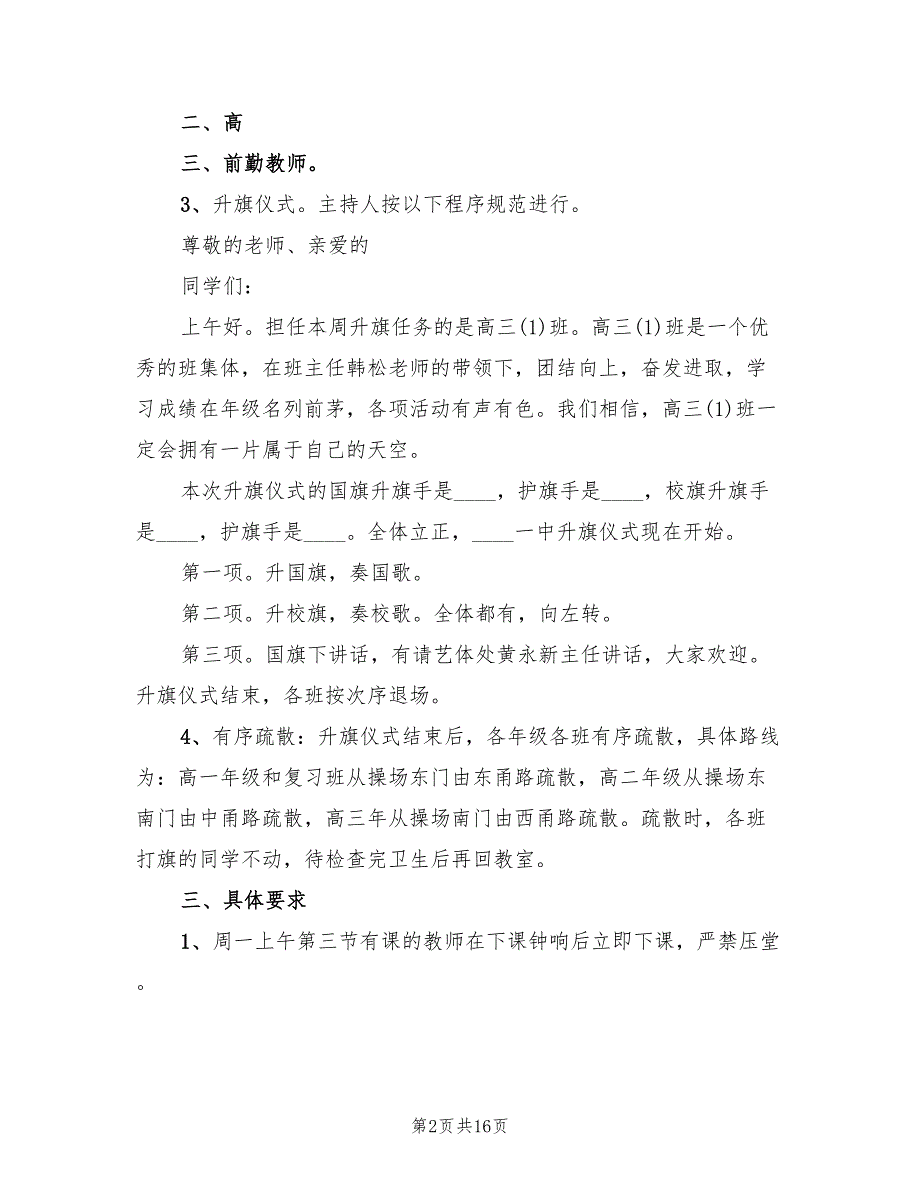 二、高
三、前勤教师。
3、升旗仪式。主持人按以下程序规范进行。
尊敬的老师、亲爱的
同学们：
上午好。担任本周升旗任务的是高三(1)班。高三(1)班是一个优
秀的班集体，在班主任韩松老师的带领下，团结向上，奋发进取，学
习成绩在年级名列前茅，各项活动有声有色。我们相信，高三(1)班一
定会拥有一片属于自己的天空。
本次升旗仪式的国旗升旗手是____，护旗手是____，校旗升旗手
是____，护旗手是____。全体立正，____一中升旗仪式现在开始。
第一项。升国旗，奏国歌。
第二项。升校旗，奏校歌。全体都有，向左转。
第三项。国旗下讲话，有请艺体处黄永新主任讲话，大家欢迎。
升旗仪式结束，各班按次序退场。
4、有序疏散：升旗仪式结束后，各年级各班有序疏散，具体路线
为：高一年级和复习班从操场东门由东甬路疏散，高二年级从操场东
南门由中甬路疏散，高三年从操场南门由西甬路疏散。疏散时，各班
打旗的同学不动，待检查完卫生后再回教室。
三、具体要求
1、周一上午第三节有课的教师在下课钟响后立即下课，严禁压堂
。
第2页共16页